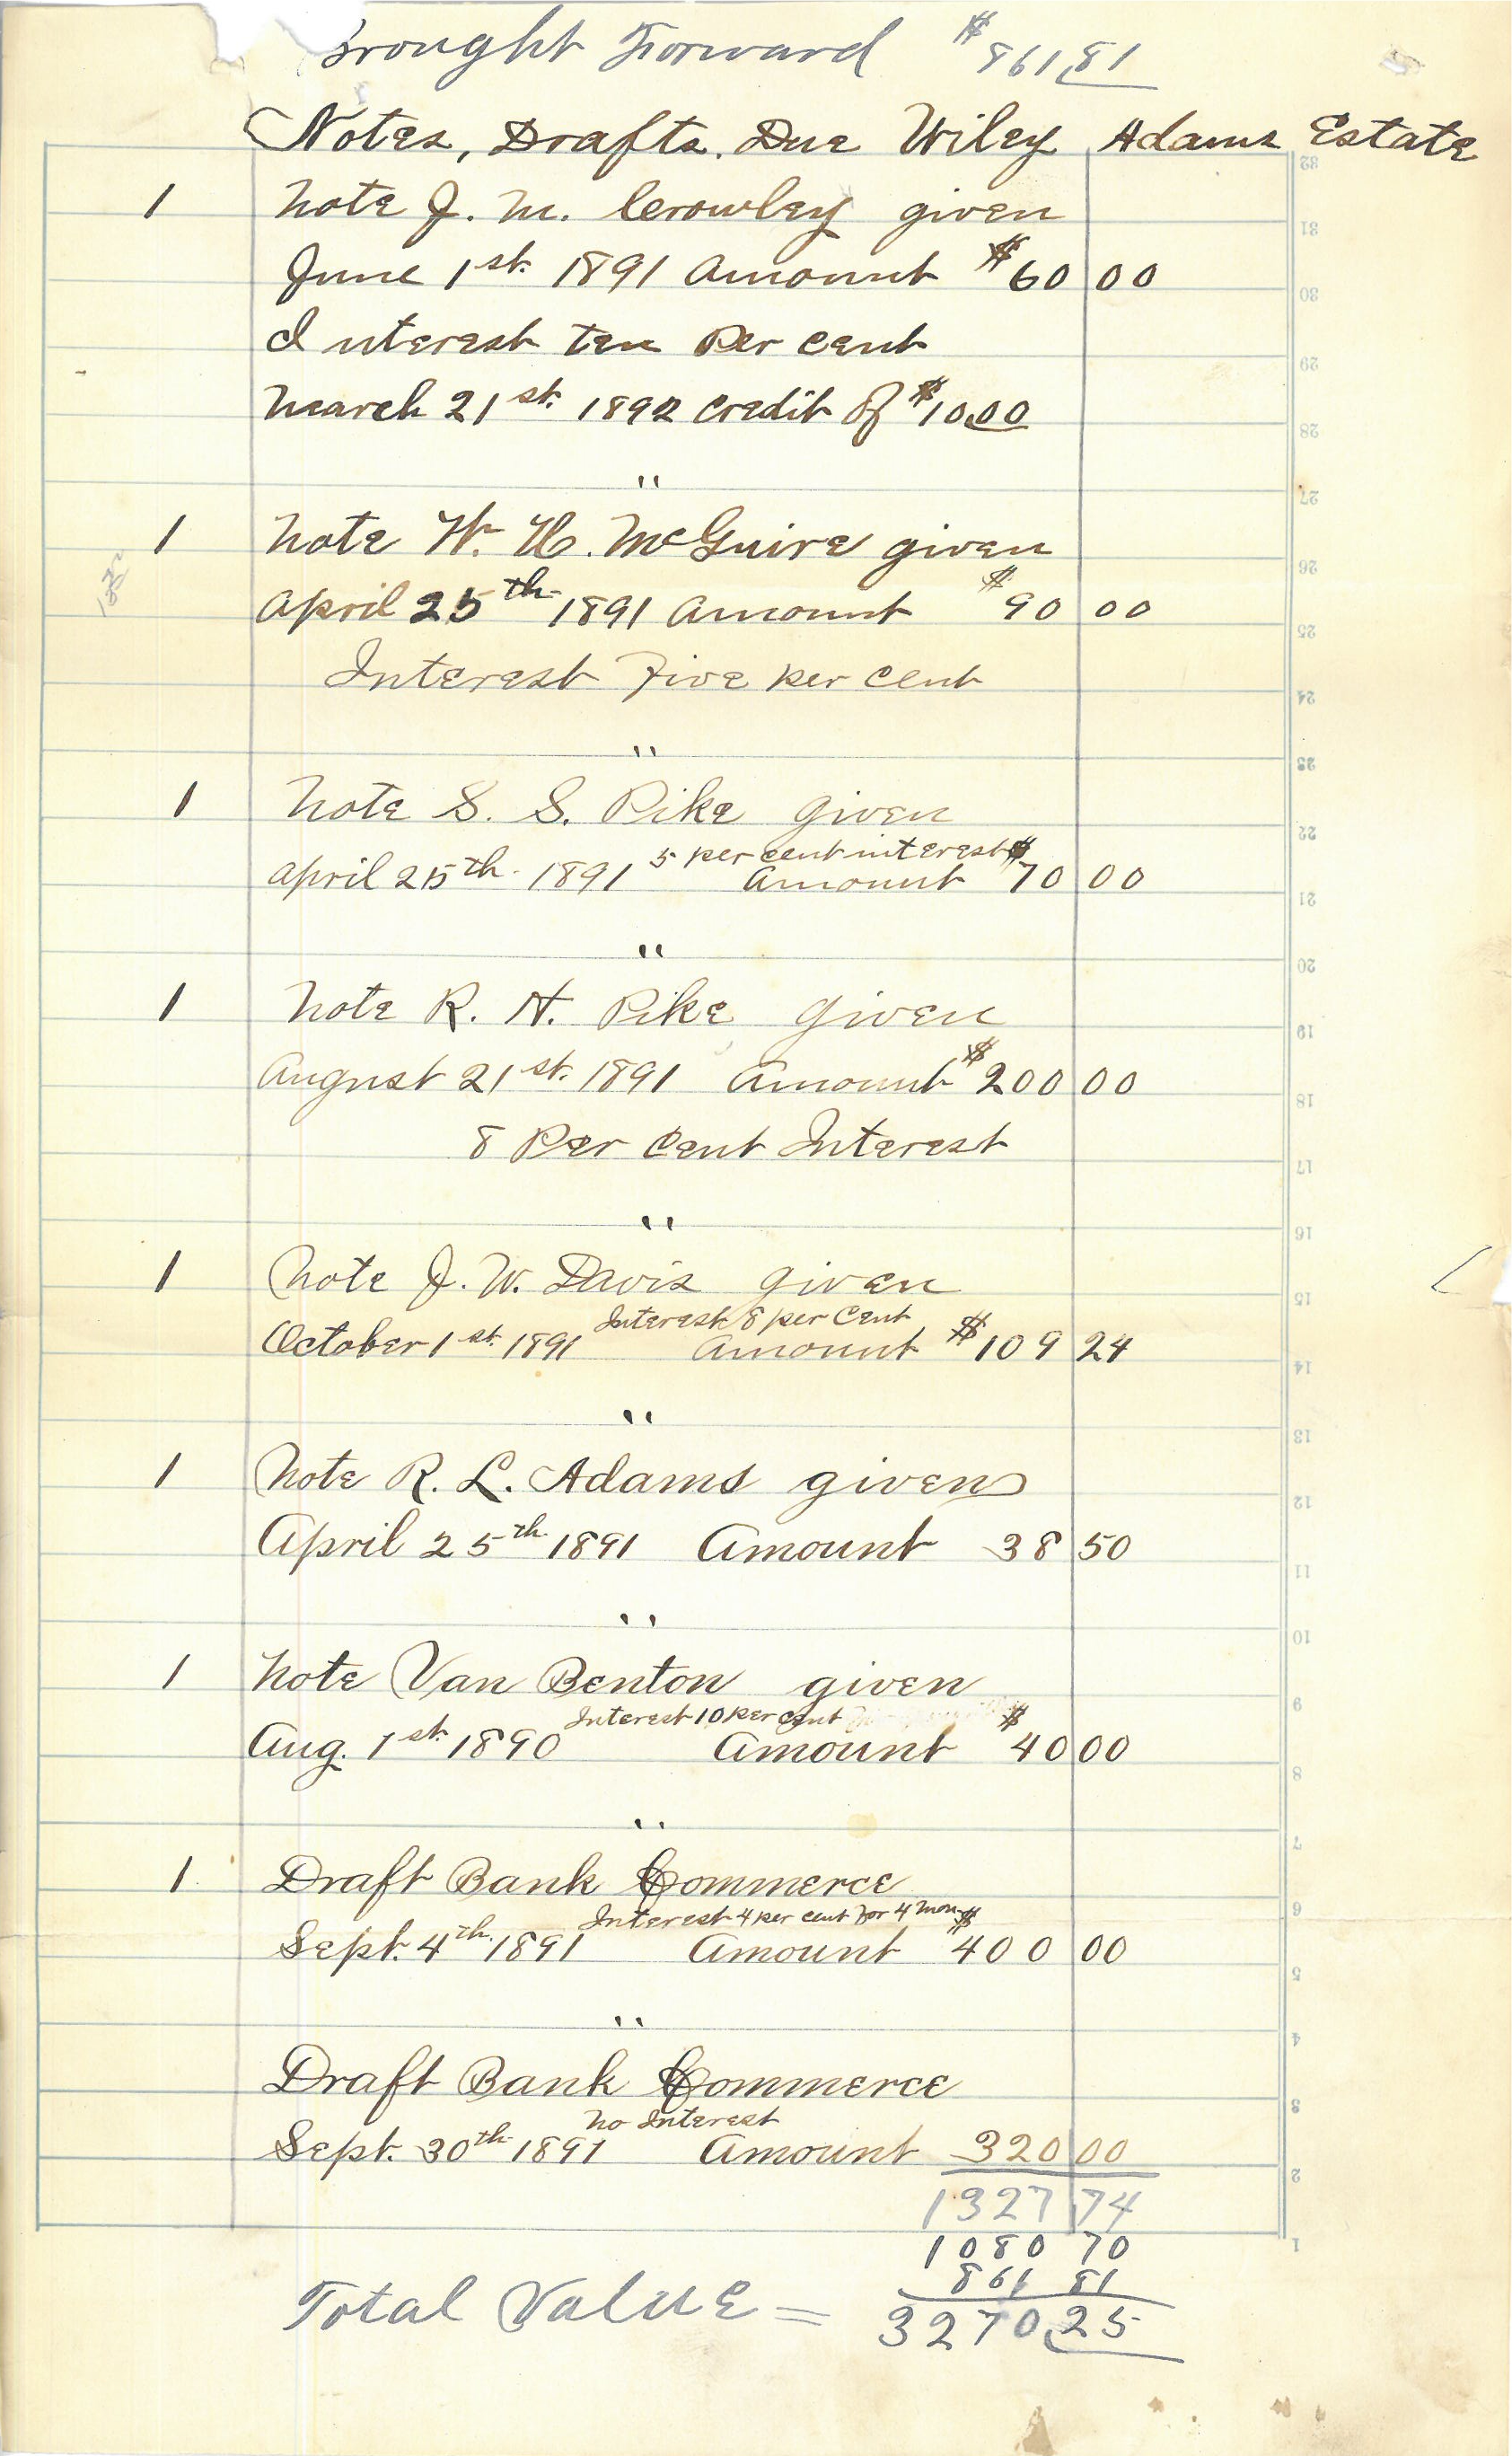 Brought Forward $861.81
Notes, Drafts. Due Wiley Adams Estate
1 Note J. M. Crowley given
June 1st. 1891 Amount $60 00
Interest ten Per cent
March 21st. 1892 credit of $10.00
"
1 Note W. H. McGuire given
April 25th 1891 Amount $90 00
Interest Five per cent
"
1 Note S. S. Pike given
5 per cent interest
April 25th. 1891 Amount $70 00
"
1 Note R. H. Pike given
August 21st. 1891 Amount $200 00
8 Per Cent Interest
"
1 Note J. W. Davis given
Interest 8 per Cent
October 1st. 1891 Amount $109 24
"
1 Note R. L. Adams given
April 25th 1891 Amount 38 50
"
1 Note Van Benton given
Interest 10 per cent
Aug. 1st. 1890 Amount $40 00
"
1. Draft Bank Commerce
Interest 4 per cent for 4 mon
Sept. 4th. 1891 Amount $400 00
"
Draft Bank Commerce
No Interest
Sept. 30th 1891 Amount 320 00
1327 74
1080 70
861 81
Total Value = 3270.25
32
31
30
29
28
27
26
25
24
23
22
21
20
19
18
17
16
15
14
13
12
11
10
9
8
7
6
5
4
3
2
1